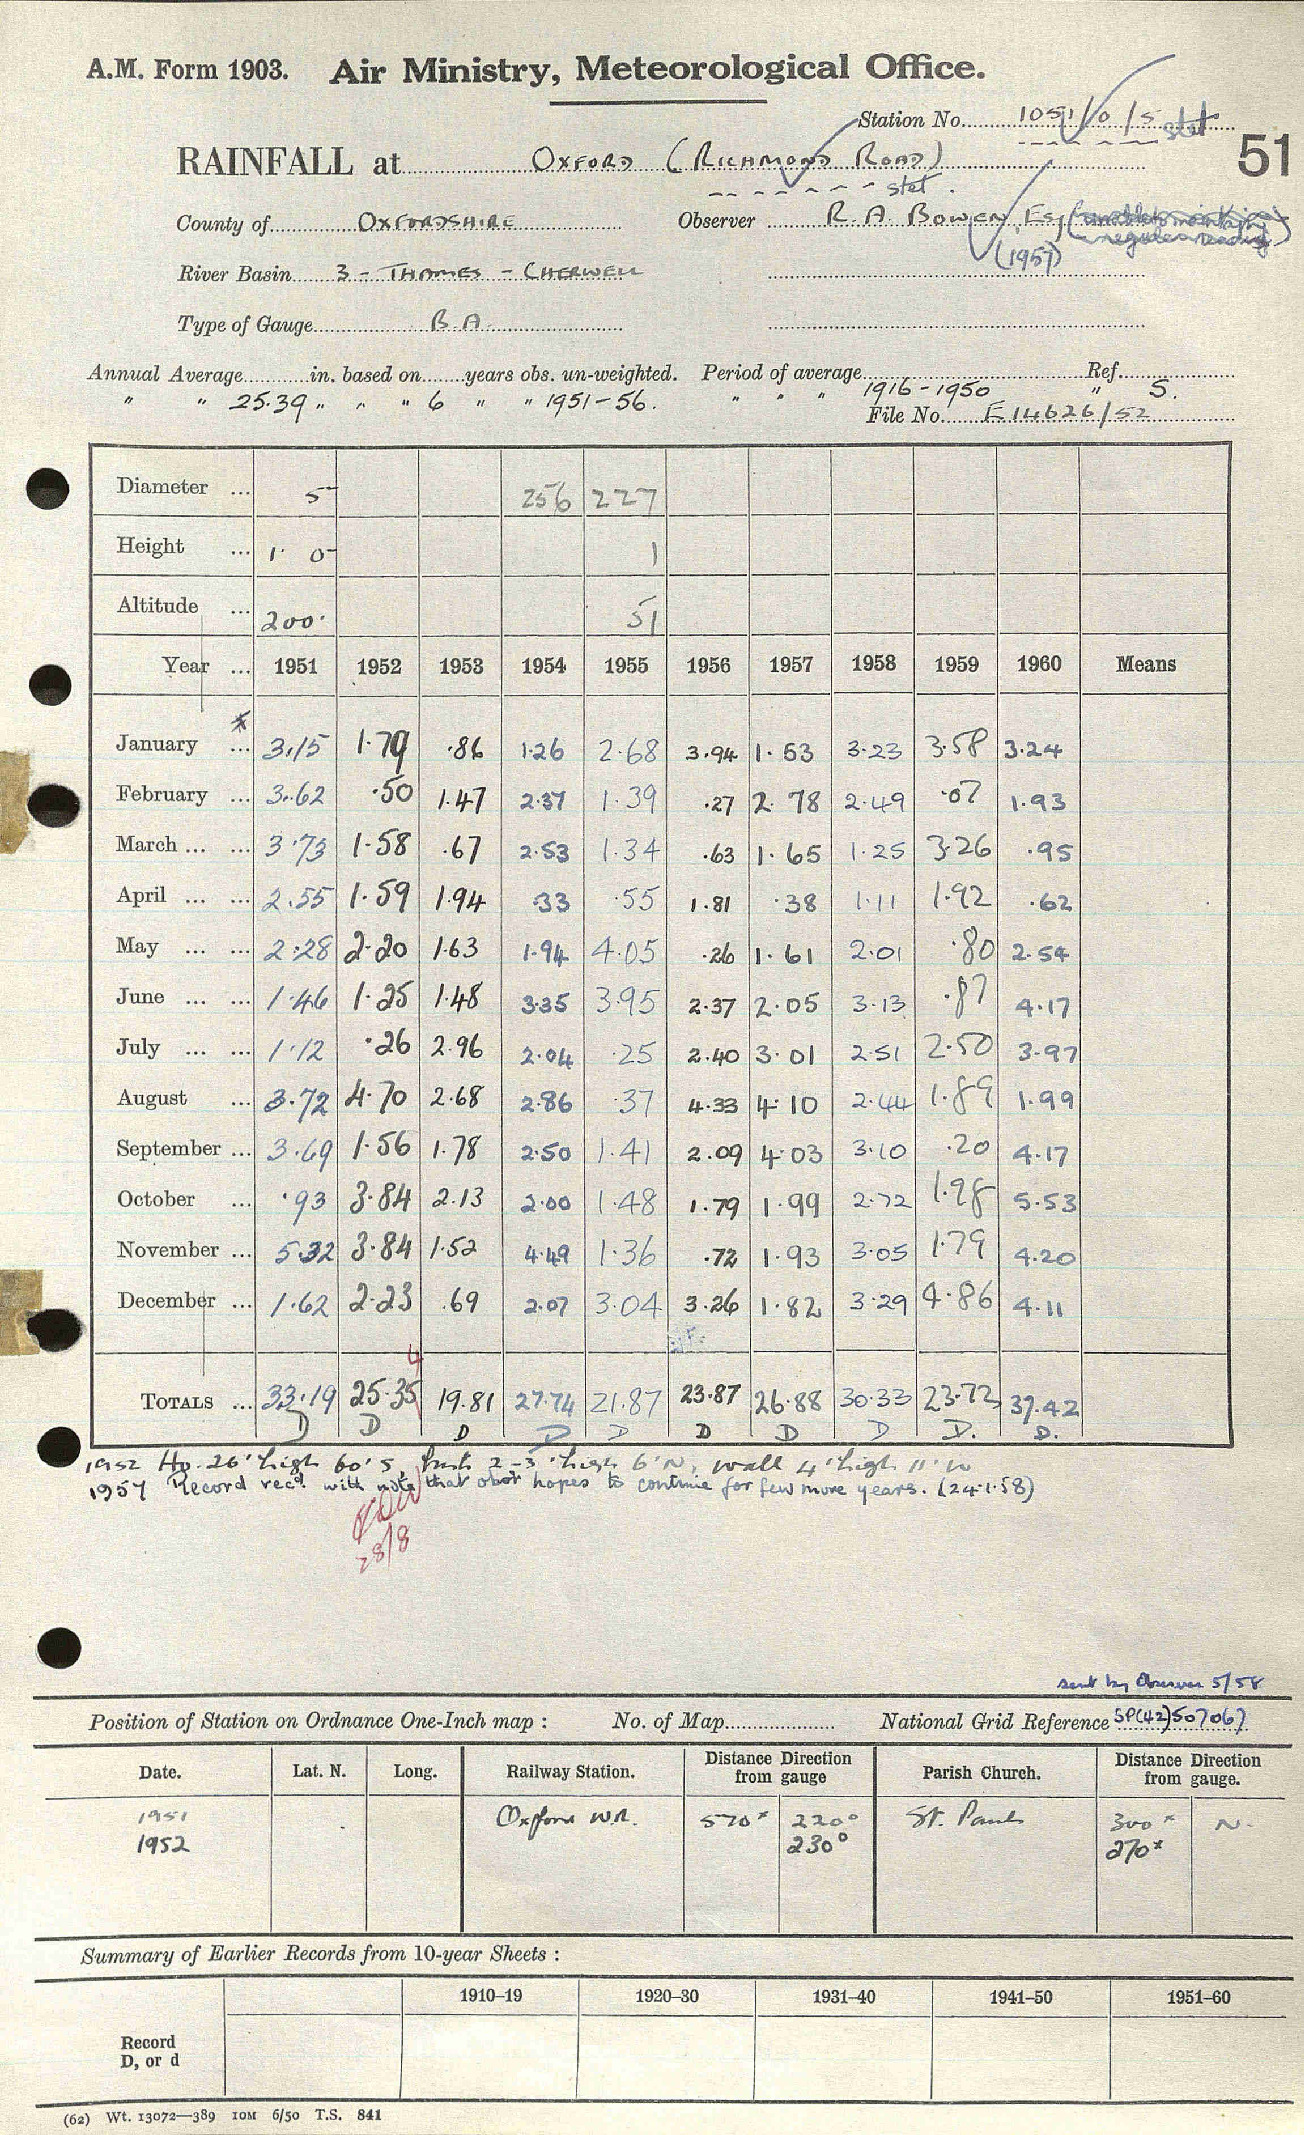 A.M. Form 1903. Air Ministry, Meteorological Office.
Station No. 1051/0/5 stet
51
RAINFALL at OXFORD (RICHMOND ROAD)
stet.
County of OXFORDSHIRE Observer R. A. BOWEN, Esq
(1957)
River Basin 3 - THAMES - CHERWELL
Type of Gauge B.A.
Annual Average in. based on years obs. un-weighted. Period of average Ref.
" " 25.39 " " " 6 " " 1951-56. " " " 1916-1950 " S.
File No. E14626/52
Diameter ... 5 256 227
Height ... 1' 0 1
Altitude ... 200' 51
Year ... 1951 1952 1953 1954 1955 1956 1957 1958 1959 1960 Means
January ... 3.15 1.79 .86 1.26 2.68 3.94 1.53 3.23 3.58 3.24
February ... 3.62 .50 1.47 2.37 1.39 .27 2.78 2.49 .07 1.93
March ... ... 3.73 1.58 .67 2.53 1.34 .63 1.65 1.25 3.26 .95
April ... ... 2.55 1.59 1.94 .33 .55 1.81 .38 1.11 1.92 .62
May ... ... 2.28 2.20 1.63 1.94 4.05 .26 1.61 2.01 .80 2.54
June ... ... 1.46 1.25 1.48 3.35 3.95 2.37 2.05 3.13 .87 4.17
July ... ... 1.12 .26 2.96 2.04 .25 2.40 3.01 2.51 2.50 3.97
August ... 3.72 4.70 2.68 2.86 .37 4.33 4.10 2.44 1.89 1.99
September ... 3.69 1.56 1.78 2.50 1.41 2.09 4.03 3.10 .20 4.17
October ... .93 3.84 2.13 2.00 1.48 1.79 1.99 2.72 1.98 5.53
November ... 5.32 3.84 1.52 4.49 1.36 .72 1.93 3.05 1.79 4.20
December ... 1.62 2.23 .69 2.07 3.04 3.26 1.82 3.29 4.86 4.11
4
TOTALS ... 33.19 25.35 19.81 27.74 21.87 23.87 26.88 30.33 23.72 37.42
D D D D D D D D D. D.
1952 Ho. 26' high 60' S, bush 2-3' high 6' N, wall 4' high 11' W
1957 Record recd. with note that obsr hopes to continue for few more years. (24.1.58)
28/8
sent by Observer 5/58
Position of Station on Ordnance One-Inch map : No. of Map National Grid Reference SP(42)507067
Date. Lat. N. Long. Railway Station. Distance Direction from gauge Parish Church. Distance Direction from gauge.
1951 Oxford W.R. 570x 220° St. Pauls 300x N.
1952 230° 270x
Summary of Earlier Records from 10-year Sheets :
1910–19 1920–30 1931–40 1941–50 1951–60
Record
D, or d
(62) Wt. 13072—389 10M 6/50 T.S. 841